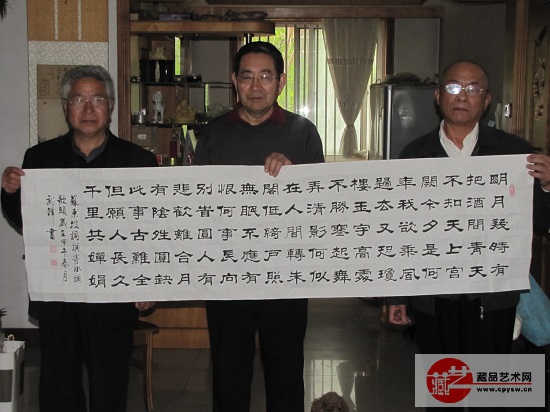 明月幾時有
把酒問青天
不知天上宮
闕今夕是何
年我欲乘風
歸去又恐瓊
樓玉宇高處
不勝寒起舞
弄清影何似
在人間轉朱
閣低綺戶照
無眠不應有
恨何事長向
別時圓人有
悲歡離合月
有陰晴圓缺
此事古難全
但願人長久
千里共嬋娟
蘇東坡詞調寄水調
歌頭歲在甲午春月
書
藏艺
藏品艺术网
www.cpysw.cn